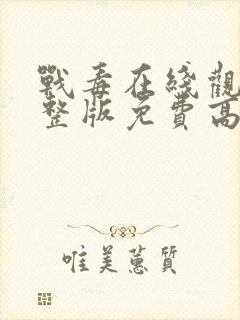 戰毒在綫觀
整版免費高
唯美蕙質